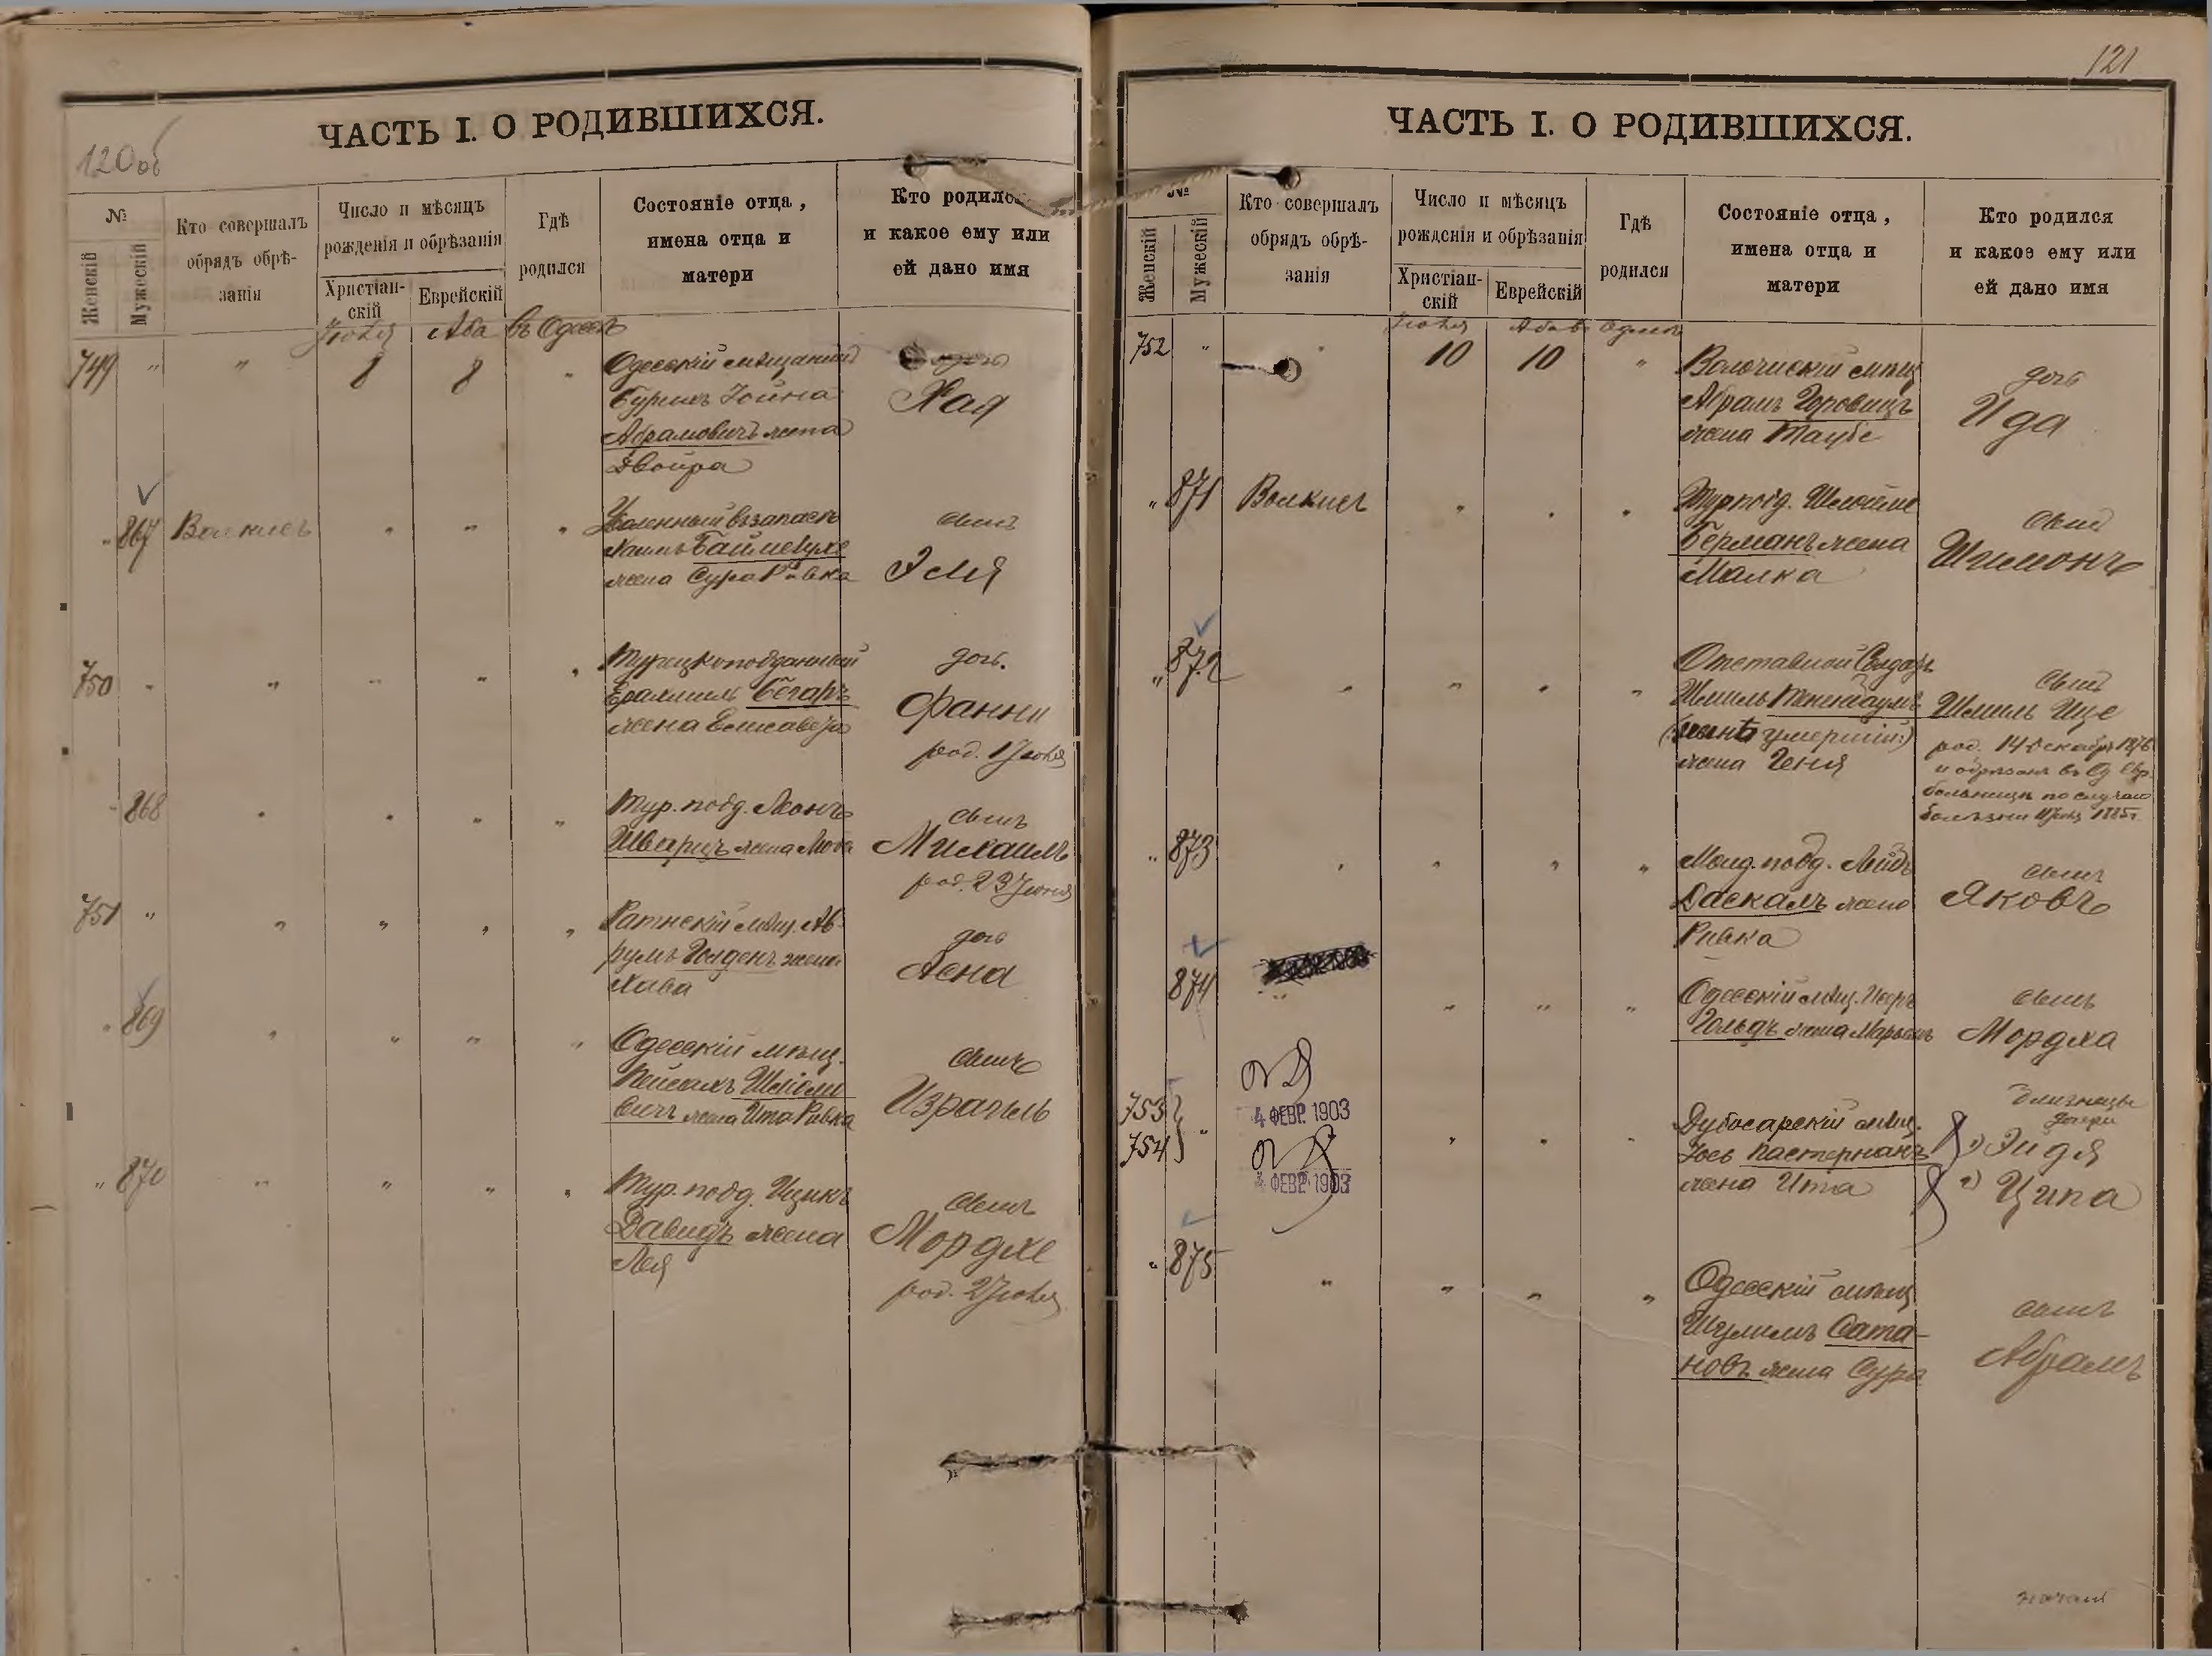 ЧАСТЬ I. О РОДИВШИХСЯ.
120об
№
Женскій
Мужескій
Кто совершалъ
обрядъ обрѣ-
занія
Число и мѣсяцъ
рожденія и обрѣзанія
Христіан-
скій
Еврейскій
Гдѣ
родился
Состояніе отца,
имена отца и
матери
Кто родился
и какое ему или
ей дано имя
Іюля Аба въ Одессѣ
749 " " 8 8 "
Одесскій мѣщанинъ
Іойна
Абрамовичъ жена
Двойра
Хая
" 867 " " "
Уволенный въ запасъ
жена Сура Ривка
сынъ
Эля
750 " " " " "
Турецкоподданный
Бегаръ
жена Елисавета
дочь.
Фанни
род. 1 Іюля
" 868 " " " "
Тур. подд. Леонъ
Шварцъ жена
сынъ
Михаилъ
род. 23 Іюня
751 " " " " "
Ратнскій мѣщ. Аб-
румъ Голденъ жена
Хава
дочь
" 869 " " " "
Одесскій мѣщ.
вичъ жена Ита Ривка
сынъ
Израиль
" 870 " " " "
Тур. подд. Ицикъ
Давидъ жена
Лея
сынъ
Мордхе
род. 2 Іюля
121
ЧАСТЬ I. О РОДИВШИХСЯ.
№
Женскій
Мужескій
Кто совершалъ
обрядъ обрѣ-
занія
Число и мѣсяцъ
рожденія и обрѣзанія
Христіан-
скій
Еврейскій
Гдѣ
родился
Состояніе отца,
имена отца и
матери
Кто родился
и какое ему или
ей дано имя
Іюля Аба въ Одессѣ
752 " " 10 10 "
Волочискій мѣщ
Абрамъ Горовицъ
жена Таубе
дочь
Ида
" 871 " " "
Тур подд.
Германъ жена
Малка
сынъ
Шимонъ
" 872 " " " "
Отставной Солдатъ
Шмиль
умершій)
жена Геня
сынъ
Шмиль
род. 14 декабр 1876
и обрѣзанъ въ Од Евр.
больницѣ по случаю
болѣзни Іюля 1885г.
" 873 " " " "
Молд. подд. Лейбъ
Даскалъ жена
Ривка
сынъ
Яковъ
874 " " " "
Одесскій мѣщ.
Гольдъ жена
сынъ
Мордха
753
754 " " " "
4 ФЕВР. 1903
4 ФЕВР. 1903
Дубосарскій мѣщ.
Іось Пастернакъ
жена Ита
Близнецы
дочери
1) Эйдя
2) Ципа
" 875 " " " "
Одесскій мѣщ
Шулимъ Сата-
новъ жена Сура
сынъ
Абрамъ